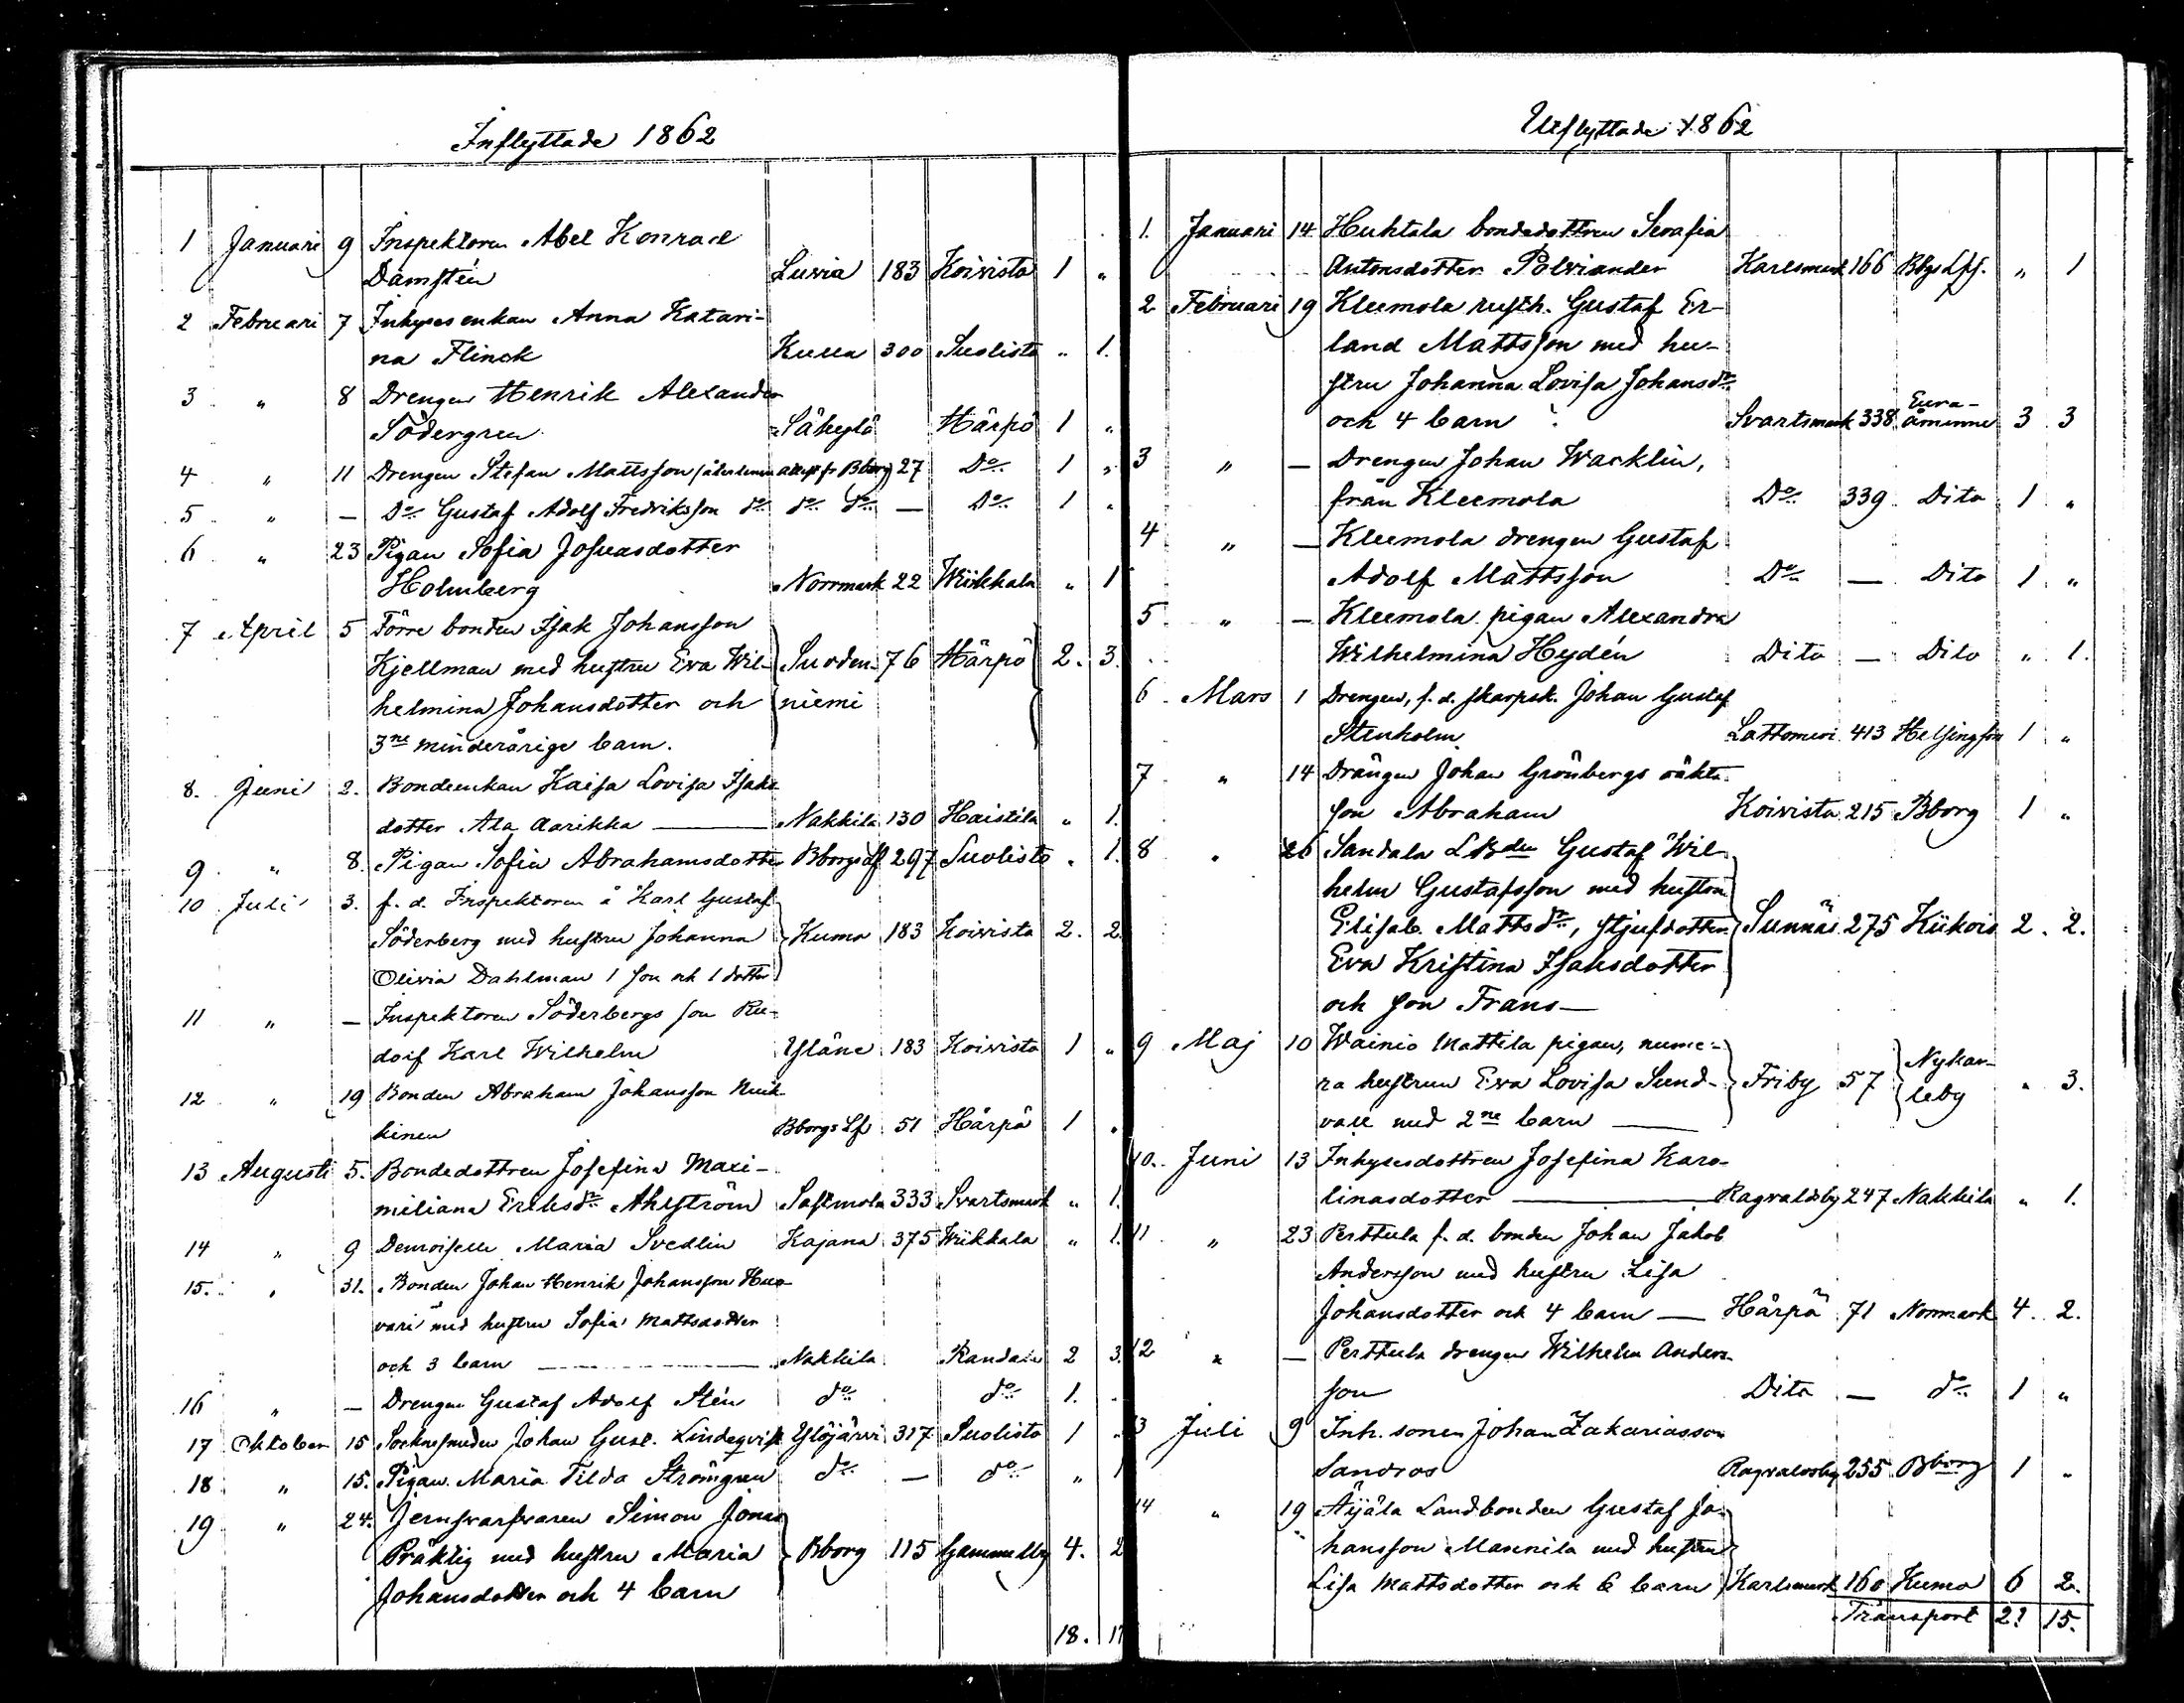 Inflyttade 1862
1 Januari 9 Inspektoren Abel Konrad
Damstén Luvia 183 Koivisto 1 "
2 Februari 7 Inhyses enkan Anna Katari-
na Flinck Kulla 300 Suolisto " 1.
3 " 8 Drengen Henrik Alexander
Södergren Säkylä Härpö 1 "
4 " 11 Drengen Stefan Mattsson (återlemn attest fr Bborg) 27 Do 1 "
5 " — Do Gustaf Adolf Fredriksson do do do — Do 1 "
6 " 23 Pigan Sofia Josuasdotter
Holmberg Norrmark 22 Wiikkala " 1
7 April 5 Förre bonden Isak Johansson
Kjellman med hustru Eva Wil- Suoden- 76 Härpö 2. 3.
helmina Johansdotter och niemi
3ne minderårige barn.
8. Juni 2. Bondeenkan Kaisa Lovisa Isaks
dotter Ala Aarikka — Nakkila 130 Haistila " 1.
9 " 8. Pigan Sofia Abrahamsdotter Bborgs Lf 297 Suolisto " 1.
10 Juli 3. f. d. Inspektoren å Karl Gustaf
Söderberg med hustru Johanna Kumo 183 Koivisto 2. 2.
Olivia Dahlman 1 son och 1 dotter
11 " — Inspektoren Söderbergs son Ru-
dolf Karl Wilhelm Yläne 183 Koivisto 1 "
12 " 19 Bonden Abraham Johansson
kinen Bborgs Lf 51 Härpö 1 "
13 Augusti 5. Bondedottren Josefina Maxi-
miliana Eriksdr Ahlström Sastmola 333 Svartsmark " 1.
14 " 9 Demoiselle Maria Svedlin Kajana 375 Wiikkala " 1.
15. " 31. Bonden Johan Henrik Johansson Huo-
vari med hustru Sofia Mattsdotter
och 3 barn — Nakkila Randala 2 3.
16 " — Drengen Gustaf Adolf Stén do do 1. "
17 Oktober 15 Socknesmeden Johan Gust. Lindeqvist Ylöjärvi 317 Suolisto 1 "
18 " 15. Pigan Maria Tilda Strömgren do — do " 1
19 " 24. Jernsvarfvaren Simon Jonas
Präktig med hustru Maria Bborg 115 Gammelby 4. 2
Johansdotter och 4 barn
18. 17
Utflyttade 1862
1. Januari 14 Huhtala bondedottren Serafia
Antonsdotter Polviander Karlsmark 166 Bbgs Lfs. " 1
2 Februari 19 Kleemola rusth. Gustaf Er-
land Mattsson med hu-
stru Johanna Lovisa Johansdr
och 4 barn Svartsmark 338 Eura-
åminne 3 3
3 " — Drengen Johan Wacklin,
från Kleemola Do 339 Dito 1 "
4 " — Kleemola drengen Gustaf
Adolf Mattsson Do — Dito 1 "
5 " — Kleemola pigan Alexandra
Wilhelmina Hydén Dito — Dito " 1.
6 Mars 1 Drengen, f. d. skarpsk. Johan Gustaf
Stenholm Lattomeri 413 Helsingfors 1 "
7 " 14 Drängen Johan Grönbergs oäkta
son Abraham Koivisto 215 Bborg 1 "
8 " 26 Sandala LBden Gustaf Wil-
helm Gustafsson med hustru
Elisab. Mattsdr, styfdotter Sunnäs 275 Kiikois 2. 2.
Eva Kristina Isaksdotter
och son Frans—
9 Maj 10 Wainio Mattila pigan, nume-
ra hustrun Eva Lovisa Sund- Friby 57 Nykar- " 3.
vall med 2ne barn — leby
10. Juni 13 Inhysesdottren Josefina Karo-
linasdotter — Ragvaldsby 247 Nakkila " 1.
11 " 23 Perttula f. d. bonden Johan Jakob
Andersson med hustru Lisa
Johansdotter och 4 barn — Härpö 71 Norrmark 4. 2.
12 " — Perttula drengen Wilhelm Anders-
son Dito — do 1 "
13 Juli 9 Inh. sonen Johan Zakariasson
Sandros Ragvaldsby 255 Bborg 1 "
14 " 19 Äijälä Landbonden Gustaf Jo-
hansson Mannila med hustru
Lisa Mattsdotter och 6 barn Karlsmark 160 Kumo 6 2.
Transport 21 15.